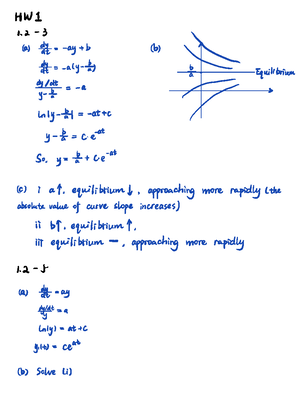 HW1
1.2 - 3
(a) dy/dt = -ay + b
dy/dt = -a(y - b/a)
(dy/dt)/(y - b/a) = -a
ln|y - b/a| = -at + c
y - b/a = c e^-at
So, y = b/a + c e^-at
(b)
b/a
Equilibrium
(c) i a↑, equilibrium↓, approaching more rapidly (the
absolute value of curve slope increases)
ii b↑, equilibrium↑,
iii equilibrium —, approaching more rapidly
1.2 - 5
(a) dy/dt = ay
(dy/dt)/y = a
ln(y) = at + c
y₁(t) = ce^at
(b) Solve (i)